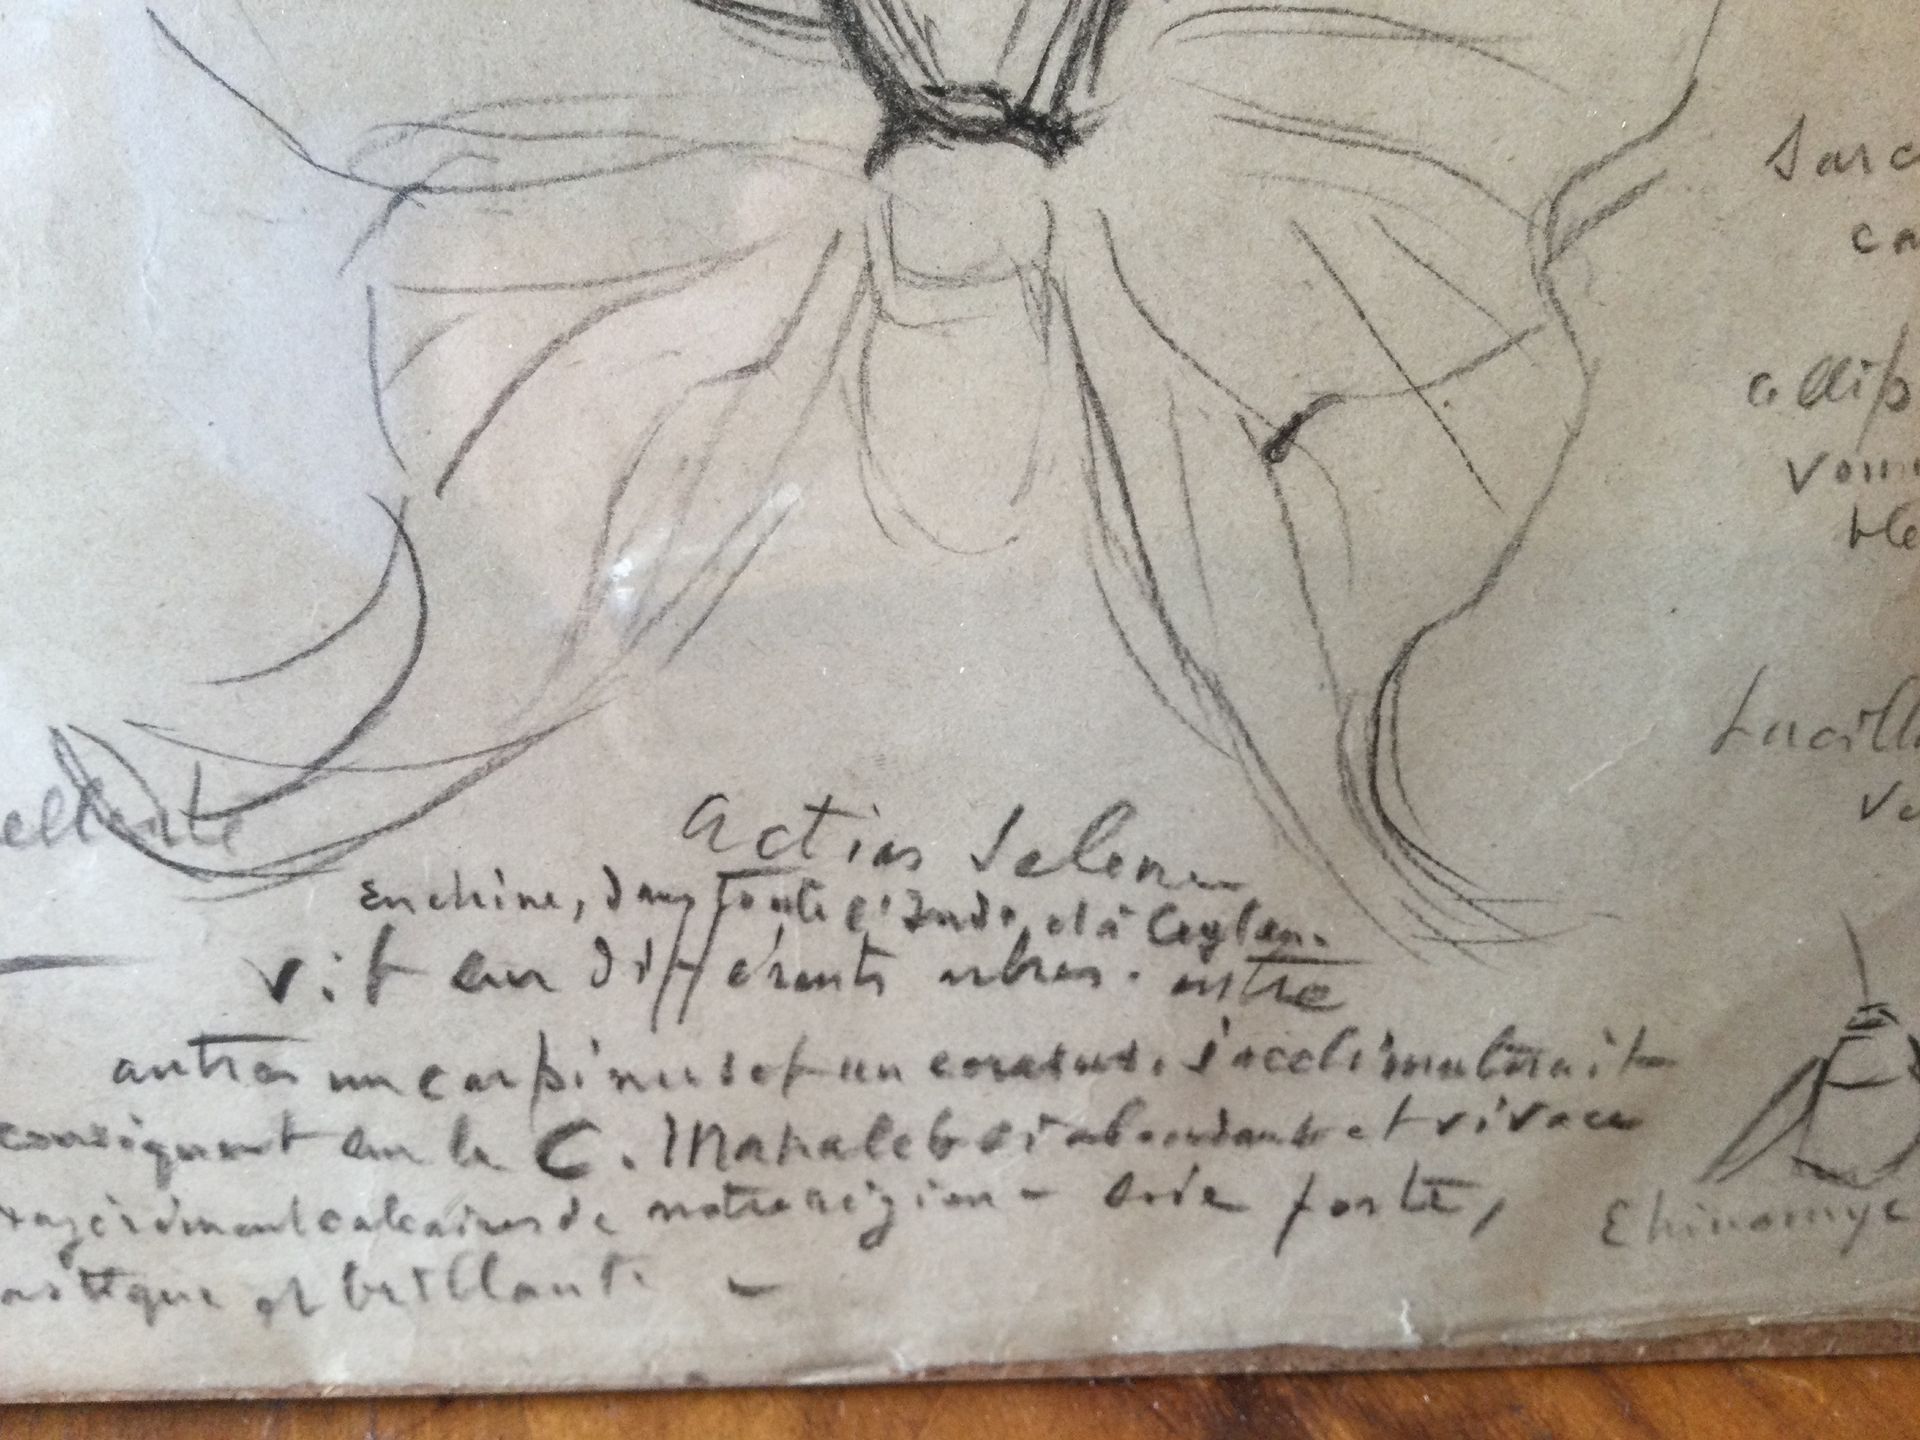 Sarc
ca
Vom
Lucill
ve
ellente
Actias Selene
En chine, dans toute l'Inde, et à Ceylan.
vit sur différents arbres. entre
autres un carpinus et un cerasus. s'acclimaterait
conséquent sur le C. Mahaleb si abondant et vivace
calcaires de notre région - soie forte,
astique et brillante -
Echinomye